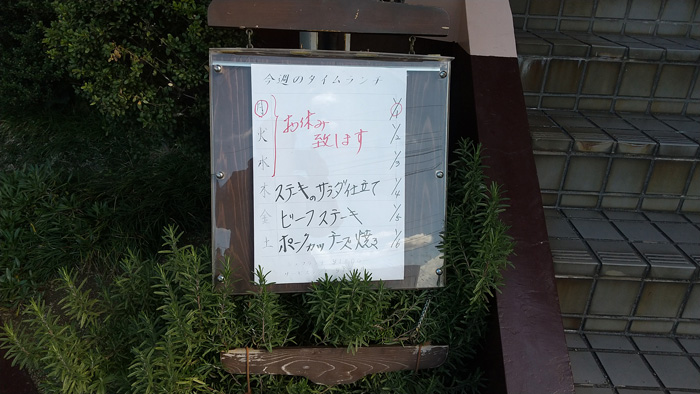 今週のタイムランチ
月 お休み 1/1
火 致します 1/2
水 1/3
木 ステーキのサラダ仕立て 1/4
金 ビーフステーキ 1/5
土 ポークカツチーズ焼き 1/6